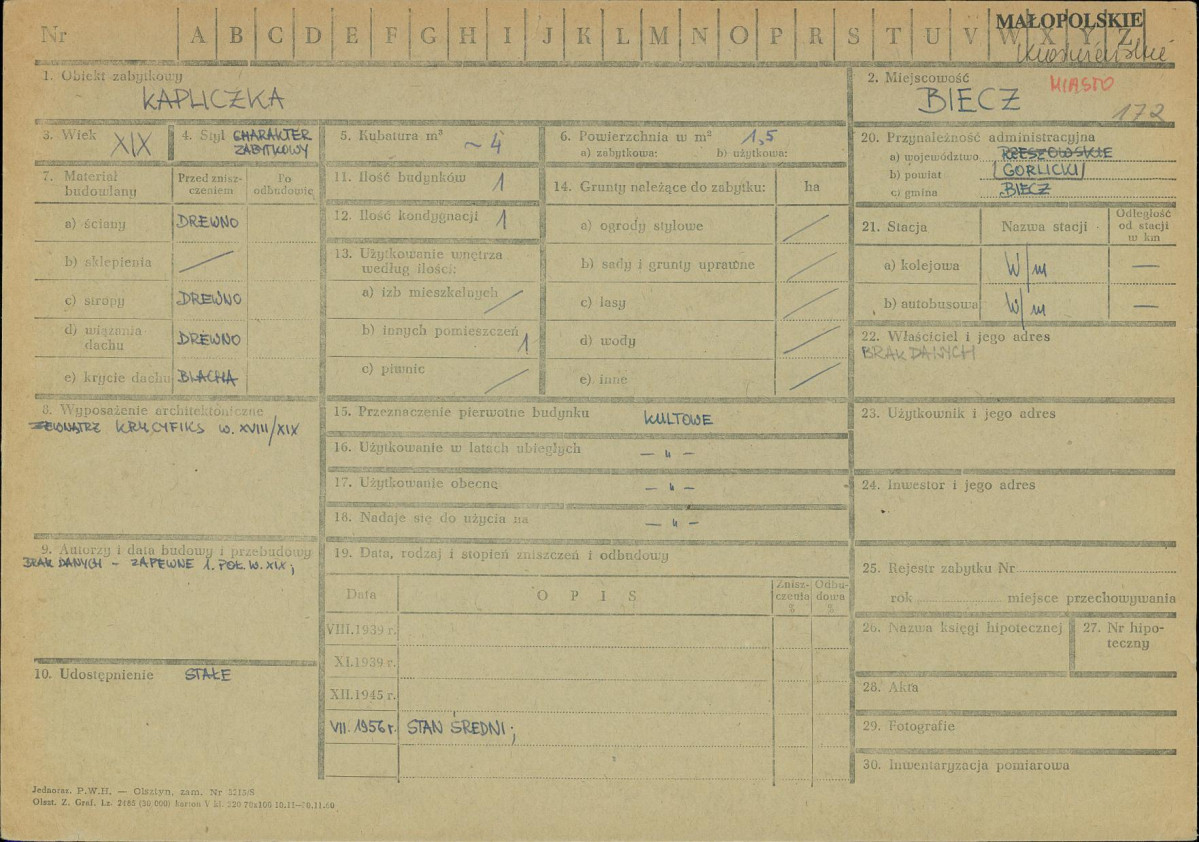 Nr A B C D E F G H I J K L M N O P R S T U V W X Y Z
MAŁOPOLSKIE
1. Obiekt zabytkowy
KAPLICZKA
2. Miejscowość MIASTO
BIECZ
172
3. Wiek XIX
4. Styl CHARAKTER
ZABYTKOWY
5. Kubatura m³ ~ 4
6. Powierzchnia w m² 1,5
a) zabytkowa: b) użytkowa:
7. Materiał
budowlany
Przed znisz-
czeniem
Po
odbudowie
a) ściany DREWNO
b) sklepienia
c) stropy DREWNO
d) wiązania
dachu DREWNO
e) krycie dachu BLACHA
8. Wyposażenie architektoniczne
ZEWNĄTRZ KRUCYFIKS W. XVIII/XIX
9. Autorzy i data budowy i przebudowy
BRAK DANYCH – ZAPEWNE 1. POŁ. W. XIX;
10. Udostępnienie STAŁE
11. Ilość budynków 1
12. Ilość kondygnacji 1
13. Użytkowanie wnętrza
według ilości:
a) izb mieszkalnych
b) innych pomieszczeń 1
c) piwnic
14. Grunty należące do zabytku: ha
a) ogrody stylowe
b) sady i grunty uprawne
c) lasy
d) wody
e) inne
15. Przeznaczenie pierwotne budynku KULTOWE
16. Użytkowanie w latach ubiegłych — " —
17. Użytkowanie obecne — " —
18. Nadaje się do użycia na — " —
19. Data, rodzaj i stopień zniszczeń i odbudowy
Data O P I S
Znisz-
czenia
%
Odbu-
dowa
%
VIII.1939 r.
XI.1939 r.
XII.1945 r.
VII. 1956 r. STAN ŚREDNI;
20. Przynależność administracyjna
a) województwo RZESZOWSKIE
b) powiat GORLICKI
c) gmina BIECZ
21. Stacja Nazwa stacji
Odległość
od stacji
w km
a) kolejowa W/m —
b) autobusowa W/m —
22. Właściciel i jego adres
BRAK DANYCH
23. Użytkownik i jego adres
24. Inwestor i jego adres
25. Rejestr zabytku Nr
rok miejsce przechowywania
26. Nazwa księgi hipotecznej
27. Nr hipo-
teczny
28. Akta
29. Fotografie
30. Inwentaryzacja pomiarowa
Jednoraz. P.W.H. — Olsztyn, zam. Nr
Olszt. Z. Graf. Lz.